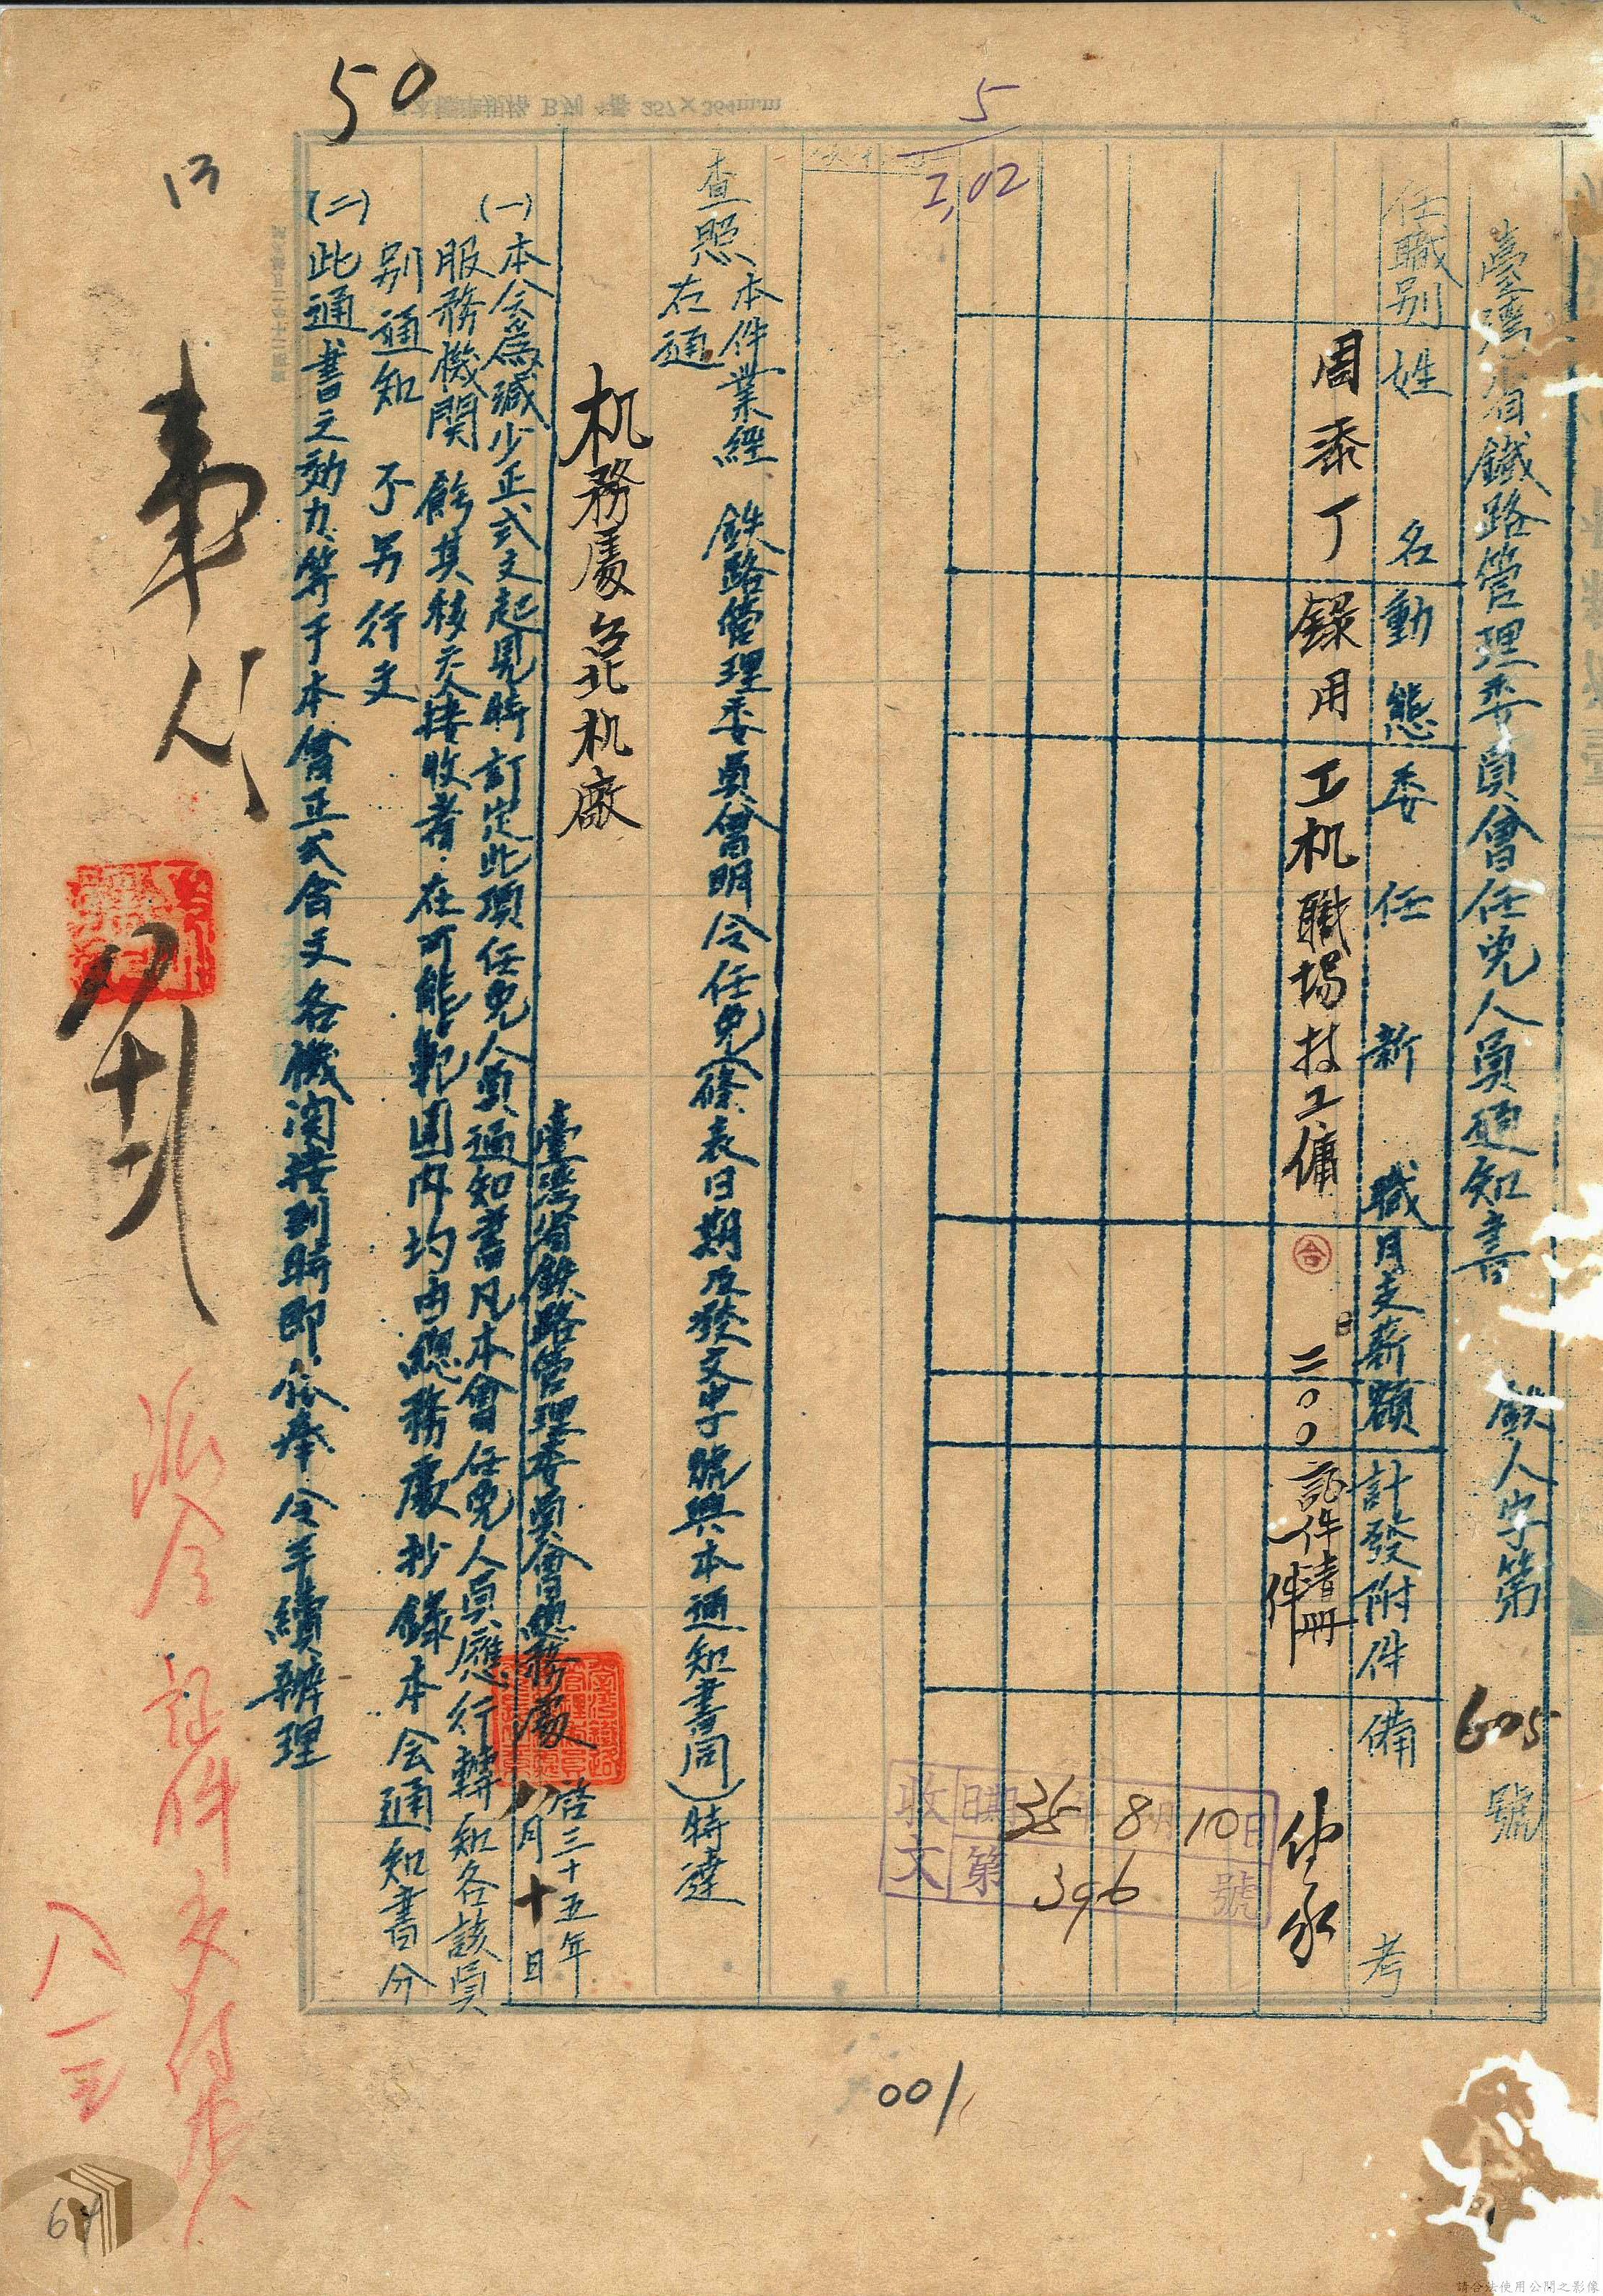 臺灣省鐵路管理委員會任免人員通知書 鉄人字第605號
任職別 姓名 動態 委任新職 月支薪額 計發附件 備考
周添丁 錄用 工机職場技工傭 二〇〇 証件清冊 件
本件業經 鉄路管理委員會明令任免(篠表日期及發文字號與本通知書同)特達
查照
在通
机務處台北机廠
臺灣省鉄路管理委員會總務處 啓三十五年
八月十日
(一)本会為減少正式文起見特訂定此項任免人員通知書凡本會任免人員應行轉知各該員
服務機関 飭其移交接收者 在可能範圍內均由總務處抄錄本会通知書分
別通知 不另行文
(二)此通書之効力等于本會正式令文各機関接到時即依奉令手續辦理
收文 日期 35年8月10日
第 396 號
50
5
I,02
13
派令証件交付
八一三
001
64
請合法使用公開之影像